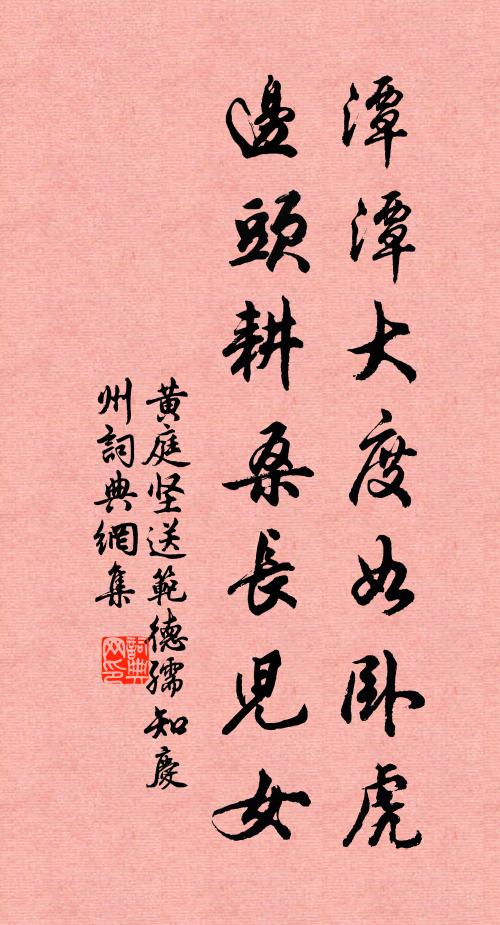 潭潭大度如卧虎
邊頭耕桑長兒女
黄庭坚送範德孺知慶
州詞典網集
詞典
网印